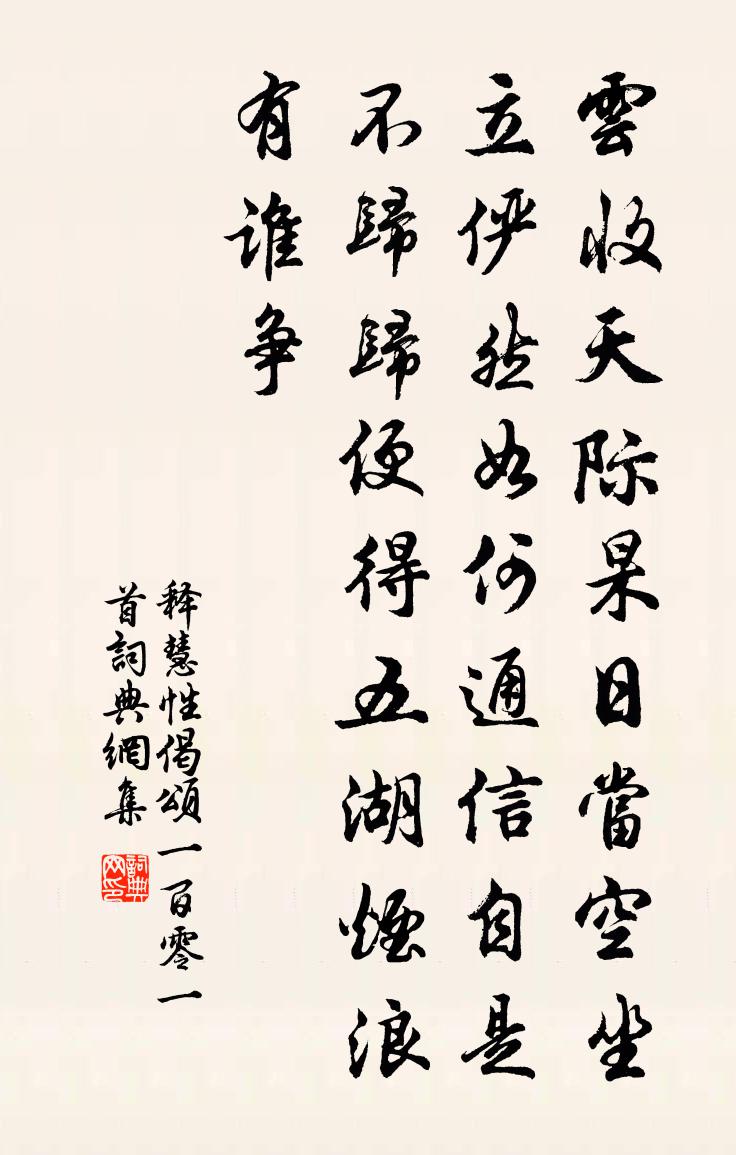 雲收天际杲日當空坐
立俨然如何通信自是
不歸歸便得五湖煙浪
有誰争
释慧性偈頌一百零一
首詞典網集
詞典网印